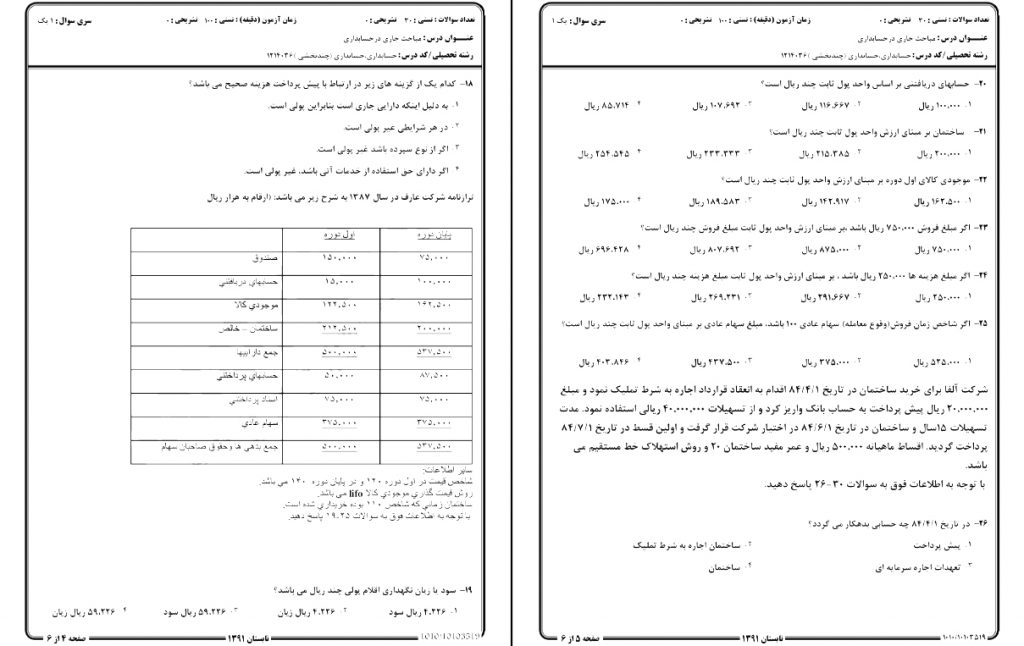 تعداد سوالات : تستی : ۳۰ تشریحی : ۰
زمان آزمون (دقیقه) : تستی : ۱۰۰ تشریحی : ۰
سری سوال : ۱ یک
عنـــوان درس : مباحث جاری در حسابداری
رشته تحصیلی/کد درس : حسابداری،حسابداری (چندبخشی )۱۲۱۴۰۳۶
۱۸- کدام یک از گزینه های زیر در ارتباط با پیش پرداخت هزینه صحیح می باشد؟
۱. به دلیل اینکه دارایی جاری است بنابراین پولی است.
۲. در هر شرایطی غیر پولی است.
۳. اگر از نوع سپرده باشد غیر پولی است.
۴. اگر دارای حق استفاده از خدمات آتی باشد، غیر پولی است.
ترازنامه شرکت عارف در سال ۱۳۸۷ به شرح زیر می باشد: (ارقام به هزار ریال
اول دوره پایان دوره
صندوق ۱۵۰،۰۰۰ ۷۵،۰۰۰
حسابهای دریافتنی ۱۵،۰۰۰ ۱۰۰،۰۰۰
موجودی کالا ۱۲۲،۵۰۰ ۱۶۲،۵۰۰
ساختمان – خالص ۲۱۲،۵۰۰ ۲۰۰،۰۰۰
جمع داراییها ۵۰۰،۰۰۰ ۵۳۷،۵۰۰
حسابهای پرداختنی ۵۰،۰۰۰ ۸۷،۵۰۰
اسناد پرداختنی ۷۵،۰۰۰ ۷۵،۰۰۰
سهام عادی ۳۷۵،۰۰۰ ۳۷۵،۰۰۰
جمع بدهی ها وحقوق صاحبان سهام ۵۰۰،۰۰۰ ۵۳۷،۵۰۰
سایر اطلاعات:
شاخص قیمت در اول دوره ۱۲۰ و در پایان دوره ۱۴۰ می باشد.
روش قیمت گذاری موجودی کالا lifo می باشد.
ساختمان زمانی که شاخص ۱۱۰ بوده خریداری شده است.
با توجه به اطلاعات فوق به سوالات ۲۵-۱۹ پاسخ دهید.
۱۹- سود یا زیان نگهداری اقلام پولی چند ریال می باشد؟
۱. ۴،۲۲۶ ریال سود ۲. ۴،۲۲۶ ریال زیان ۳. ۵۹،۲۲۶ ریال سود ۴. ۵۹،۲۲۶ ریال زیان
صفحه ۴ از ۶
تابستان ۱۳۹۱
1010/10103519
تعداد سوالات : تستی : ۳۰ تشریحی : ۰
زمان آزمون (دقیقه) : تستی : ۱۰۰ تشریحی : ۰
سری سوال : ۱ یک
عنـــوان درس : مباحث جاری در حسابداری
رشته تحصیلی/کد درس : حسابداری،حسابداری (چندبخشی )۱۲۱۴۰۳۶
۲۰- حسابهای دریافتنی بر اساس واحد پول ثابت چند ریال است؟
۱. ۱۰۰،۰۰۰ ریال ۲. ۱۱۶،۶۶۷ ریال ۳. ۱۰۷،۶۹۲ ریال ۴. ۸۵،۷۱۴ ریال
۲۱- ساختمان بر مبنای ارزش واحد پول ثابت چند ریال است؟
۱. ۲۰۰،۰۰۰ ریال ۲. ۲۱۵،۳۸۵ ریال ۳. ۲۳۳،۳۳۳ ریال ۴. ۲۵۴،۵۴۵ ریال
۲۲- موجودی کالای اول دوره بر مبنای ارزش واحد پول ثابت چند ریال است؟
۱. ۱۶۲،۵۰۰ ریال ۲. ۱۴۲،۹۱۷ ریال ۳. ۱۸۹،۵۸۳ ریال ۴. ۱۷۵،۰۰۰ ریال
۲۳- اگر مبلغ فروش ۷۵۰،۰۰۰ ریال باشد ،بر مبنای ارزش واحد پول ثابت مبلغ فروش چند ریال است؟
۱. ۷۵۰،۰۰۰ ریال ۲. ۸۷۵،۰۰۰ ریال ۳. ۸۰۷،۶۹۲ ریال ۴. ۶۹۶،۴۲۸ ریال
۲۴- اگر مبلغ هزینه ها ۲۵۰،۰۰۰ ریال باشد ، بر مبنای ارزش واحد پول ثابت مبلغ هزینه چند ریال است؟
۱. ۲۵۰،۰۰۰ ریال ۲. ۲۹۱،۶۶۷ ریال ۳. ۲۶۹،۲۳۱ ریال ۴. ۲۳۲،۱۴۳ ریال
۲۵- اگر شاخص زمان فروش(وقوع معامله) سهام عادی ۱۰۰ باشد، مبلغ سهام عادی بر مبنای ارزش واحد پول ثابت چند ریال است؟
۱. ۵۲۵،۰۰۰ ریال ۲. ۳۷۵،۰۰۰ ریال ۳. ۴۳۷،۵۰۰ ریال ۴. ۴۰۳،۸۴۶ ریال
شرکت آلفا برای خرید ساختمان در تاریخ ۸۴/۴/۱ اقدام به انعقاد قرارداد اجاره به شرط تملیک نمود و مبلغ
۲۰،۰۰۰،۰۰۰ ریال پیش پرداخت به حساب بانک واریز کرد و از تسهیلات ۴۰،۰۰۰،۰۰۰ ریالی استفاده نمود. مدت
تسهیلات ۱۵سال و ساختمان در تاریخ ۸۴/۶/۱ در اختیار شرکت قرار گرفت و اولین قسط در تاریخ ۸۴/۷/۱
پرداخت گردید. اقساط ماهیانه ۵۰۰،۰۰۰ ریال و عمر مفید ساختمان ۲۰ و روش استهلاک خط مستقیم می
باشد.
با توجه به اطلاعات فوق به سوالات ۳۰-۲۶ پاسخ دهید.
۲۶- در تاریخ ۸۴/۴/۱ چه حسابی بدهکار می گردد؟
۱. پیش پرداخت ۲. ساختمان اجاره به شرط تملیک
۳. تعهدات اجاره سرمایه ای ۴. ساختمان
صفحه ۵ از ۶
تابستان ۱۳۹۱
1010/10103519